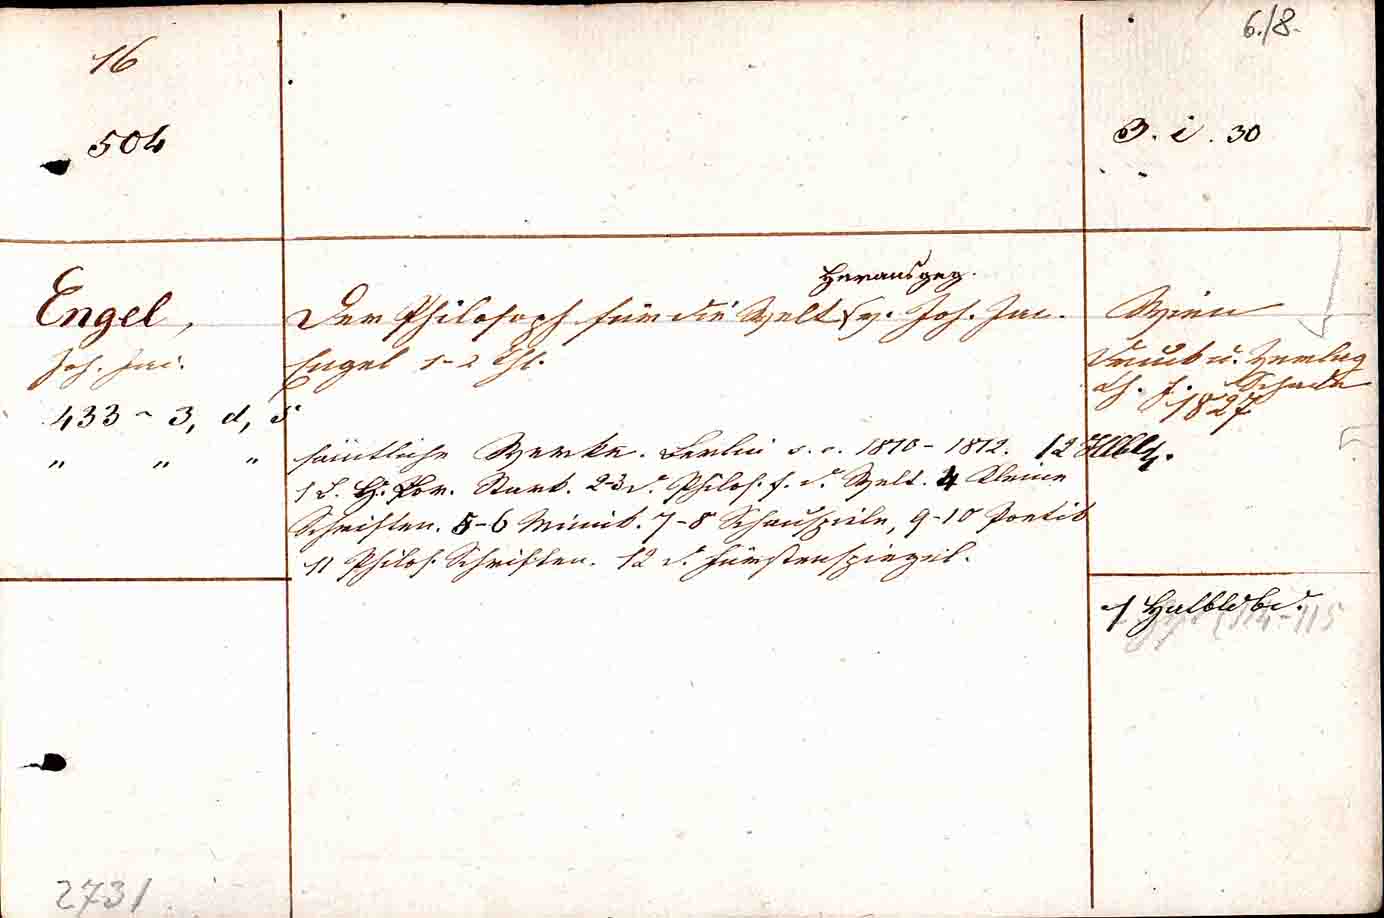 16
6./8.
504
3. i. 30
Herausgeg.
Engel, Der Philosoph für die Welt v. Joh. Jac. Wien
Joh. Jac. Engel 1-2 Thl. Druck u. Verlag
Ch. F. Schade
1827
433 - 3, d, 5
" " " sämtliche Werke. Berlin 1810 - 1812. 12 Hlbld.
1 L. H. Lor. Stark. 2-3 d. Philos. f. d. Welt. 4 Kleine
Schriften. 5-6 Mimik. 7-8 Schauspiele, 9-10 Poetik
11 Philos. Schriften. 12 d. Fürstenspiegel.
1 Halbldbd.
114-115
2731